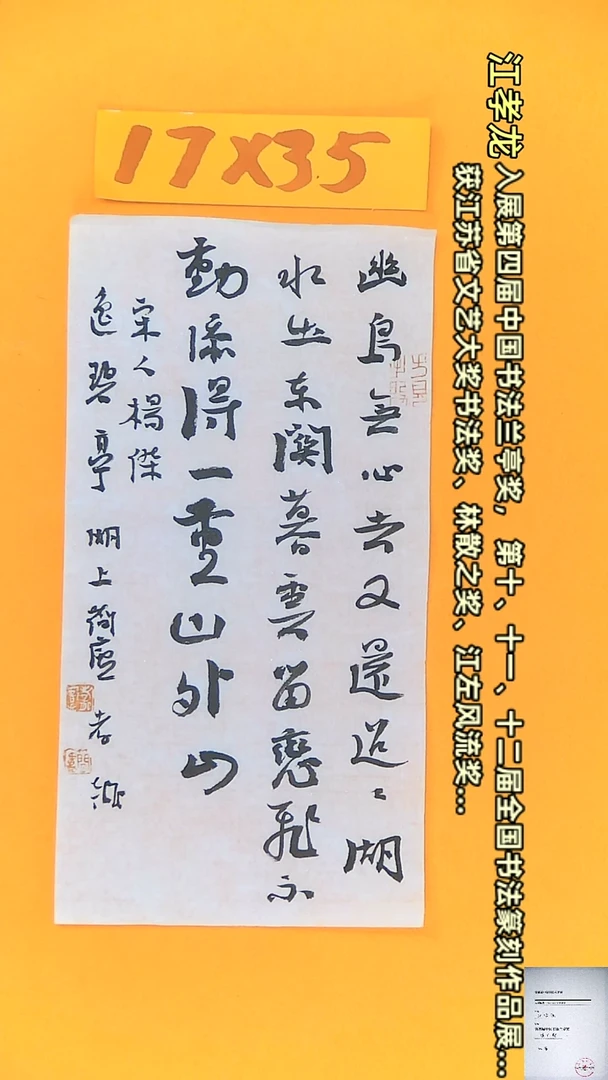 17X35
江孝龙 入展第四届中国书法兰亭奖,第十、十一、十二届全国书法篆刻作品展...
获江苏省文艺大奖书法奖、林散之奖、江左风流奖...
幽鳥無心去又還迢〻湖
水出东關暮雲留戀飛不
動添得一重山外山
宋人楊傑
逸碧亭 湖上 廬 孝龍